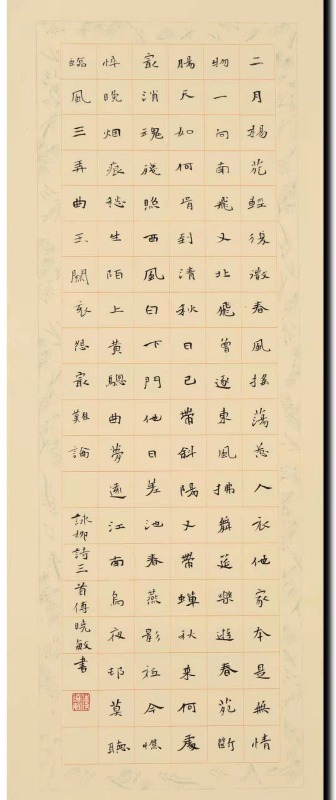 二月楊花輕復微春風搖蕩惹人衣他家本是無情
物一向南飛又北飛曾逐東風拂舞筵樂遊春苑斷
腸天如何肯到清秋日已帶斜陽又帶蟬秋來何處
最消魂殘照西風白下門他日差池春燕影祗今憔
悴晚烟痕愁生陌上黃驄曲夢遠江南烏夜邨莫聽
臨風三弄曲玉關哀怨最難論
詠柳詩三首傅曉敏書